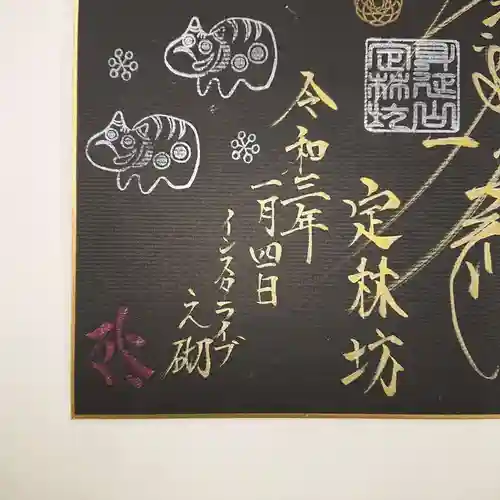 身延山
定林坊
定林坊
令和三年
一月四日
インスタライブ
之砌